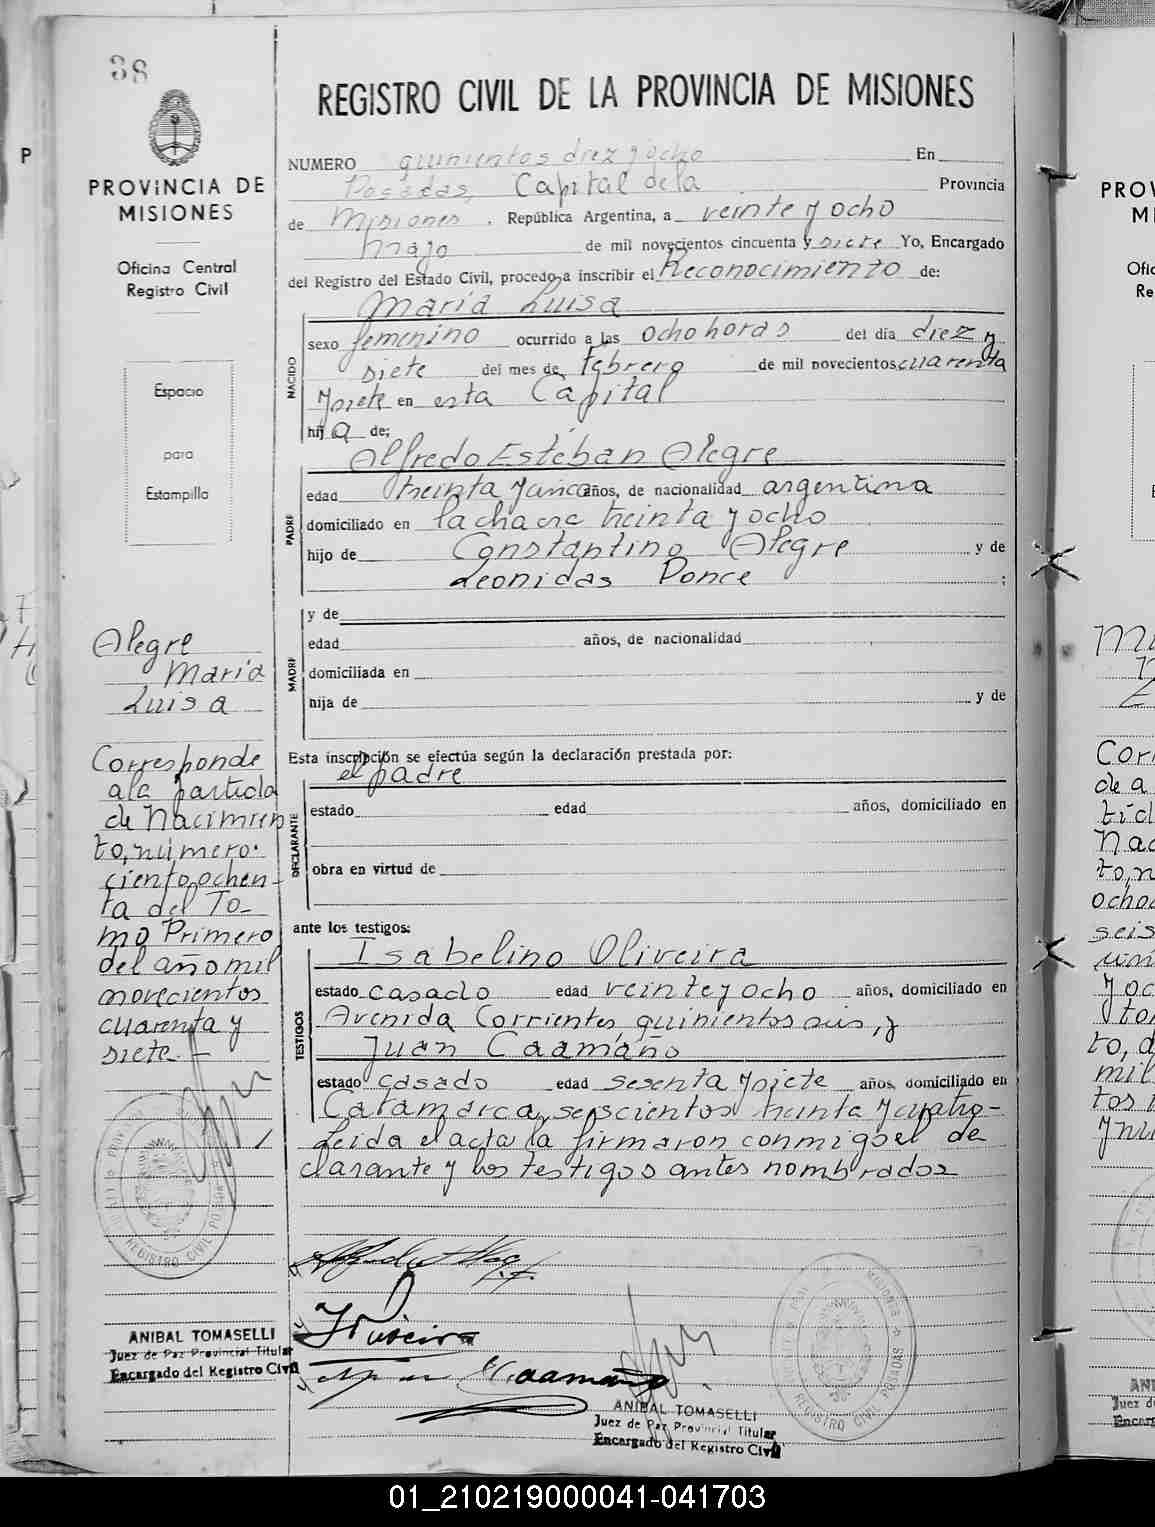 38
PROVINCIA DE
MISIONES
Oficina Central
Registro Civil
Espacio
para
Estampilla
Alegre
Maria
Luisa
Corresponde
a la partida
de Nacimien
to, número
ciento ochen-
ta del To-
mo Primero
del año mil
novecientos
cuarenta y
siete.-
ANIBAL TOMASELLI
Juez de Paz Provincial Titular
Encargado del Registro Civil
REGISTRO CIVIL DE LA PROVINCIA DE MISIONES
NUMERO quinientos diez y ocho En
Posadas, Capital de la Provincia
de Misiones, República Argentina, a veinte y ocho
mayo de mil novecientos cincuenta y siete Yo, Encargado
del Registro del Estado Civil, procedo a inscribir el Reconocimiento de:
Maria Luisa
NACIDO
sexo femenino ocurrido a las ocho horas del día diez y
siete del mes de febrero de mil novecientos cuarenta
y siete en esta Capital
hija de:
Alfredo Esteban Alegre
PADRE
edad treinta y cinco años, de nacionalidad argentina
domiciliado en la chacra treinta y ocho
hijo de Constantino Alegre y de
Leonidas Ponce ;
MADRE
y de
edad años, de nacionalidad
domiciliada en
hija de y de
Esta inscripción se efectúa según la declaración prestada por:
el padre
DECLARANTE
estado edad años, domiciliado en
obra en virtud de
ante los testigos:
Isabelino Oliveira
TESTIGOS
estado casado edad veinte y ocho años, domiciliado en
Avenida Corrientes quinientos seis, y
Juan Caamaño
estado casado edad sesenta y siete años, domiciliado en
Catamarca, seiscientos treinta y cuatro-
Leida el acta la firmaron conmigo el de
clarante y los testigos antes nombrados
Oliveira
Caamaño
ANIBAL TOMASELLI
Juez de Paz Provincial Titular
Encargado del Registro Civil
REGISTRO CIVIL POSADAS
01_210219000041-041703